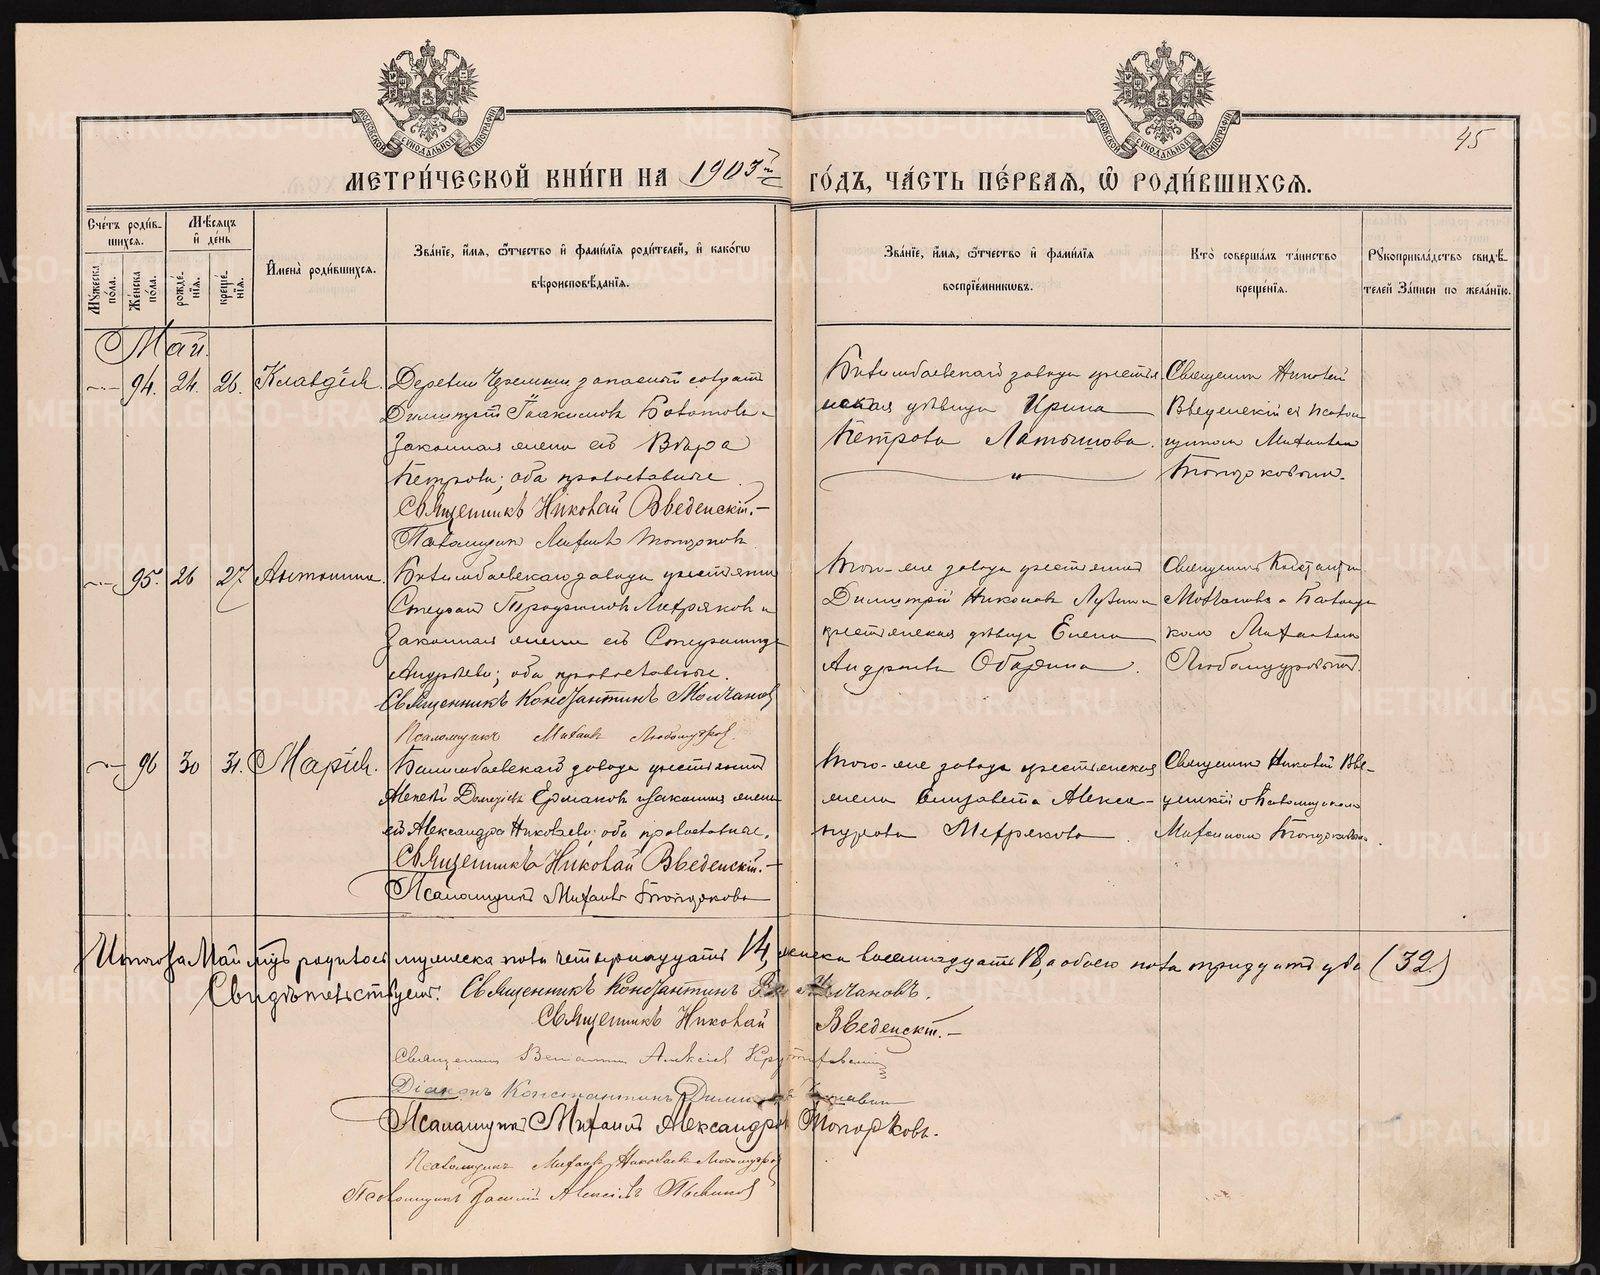 МОСКОВСКОЙ СѴНОДАЛЬНОЙ ТИПОГРАФІИ
МОСКОВСКОЙ СѴНОДАЛЬНОЙ ТИПОГРАФІИ
45
МЕТРИ́ЧЕСКОЙ КНИ́ГИ НА 1903й
ГО́ДЪ, ЧА́СТЬ ПЕ́РВАЯ, Ѡ҆ РОДИ́ВШИХСЯ.
Сче́тъ роди́в-
шихся.
Мѣ́сяцъ
и҆ де́нь
Мꙋ́жеска по́ла.
Же́нска по́ла.
рожде́-
нїѧ.
креще́-
нїѧ.
И҆мена̀ роди́вшихся.
Зва́нїе, и҆́мя, ѻ҆́тчество и҆ фами́лїя роди́телей, и҆ како́гѡ
вѣроисповѣ́данїя.
Зва́нїе, и҆́мя, ѻ҆́тчество и҆ фами́лїя
воспрїе́мникѡвъ.
Кто̀ соверша́лъ та́инство
креще́нїя.
Рꙋкоприкла́дство свидѣ́-
телей за́писи по жела́нїю.
Май.
94. 24. 26. Клавдія.
Деревни запасный солдатъ
Димитрій
Законная жена его Вѣра
Петрова; оба православные
Священникъ Николай Введенскій.-
Псаломщикъ Михаилъ Топорковъ
Билимбаевскаго завода крестьян
ская дѣвица Ирина
Петрова Латышова.
Священникъ Николай
Введенскій съ псалом
щикомъ Михаиломъ
Топорковымъ.
95. 26 27 Антонина.
Билимбаевскаго завода крестьянинъ
Стефанъ Трофимовъ Метряковъ и
Законная жена его Стефанида
Андреева; оба православные.
Священникъ Константинъ Молчановъ
Псаломщикъ Михаилъ Любомудровъ.
Того-же завода крестьянинъ
Димитрій Николаевъ
крестьянская дѣвица Елена
Андреева
Священникъ Константинъ
Молчановъ с Псаломщи
комъ Михаиломъ
Любомудровымъ.
96 30 31. Марія.
Билимбаевскаго завода крестьянинъ
Алексѣй Ермаковъ и законная жена
его Александра Николаева; оба православные.
Священникъ Николай Введенскій.-
Псаломщикъ Михаилъ Топорковъ
Того-же завода крестьянская
жена Елизавета Алекса-
ндрова Метрякова
Священникъ Николай Вве-
денскій с Псаломщикомъ
Михаиломъ Топорковымъ.
Итого за Май мцъ родилось мужеска пола четырнадцать 14, женска восемнадцать 18, а обоего пола тридцать два (32)
Свидѣтельствуемъ: Священникъ Константинъ Молчановъ.
Священникъ Николай Введенскій.-
Священникъ Алексѣевъ
Діаконъ Константинъ
Псаломщикъ Михаилъ Александровъ Топорковъ.
Псаломщикъ Михаилъ Николаевъ Любомудровъ
Псаломщикъ Василій Алексѣевъ
METRIKI.GASO-URAL.RU